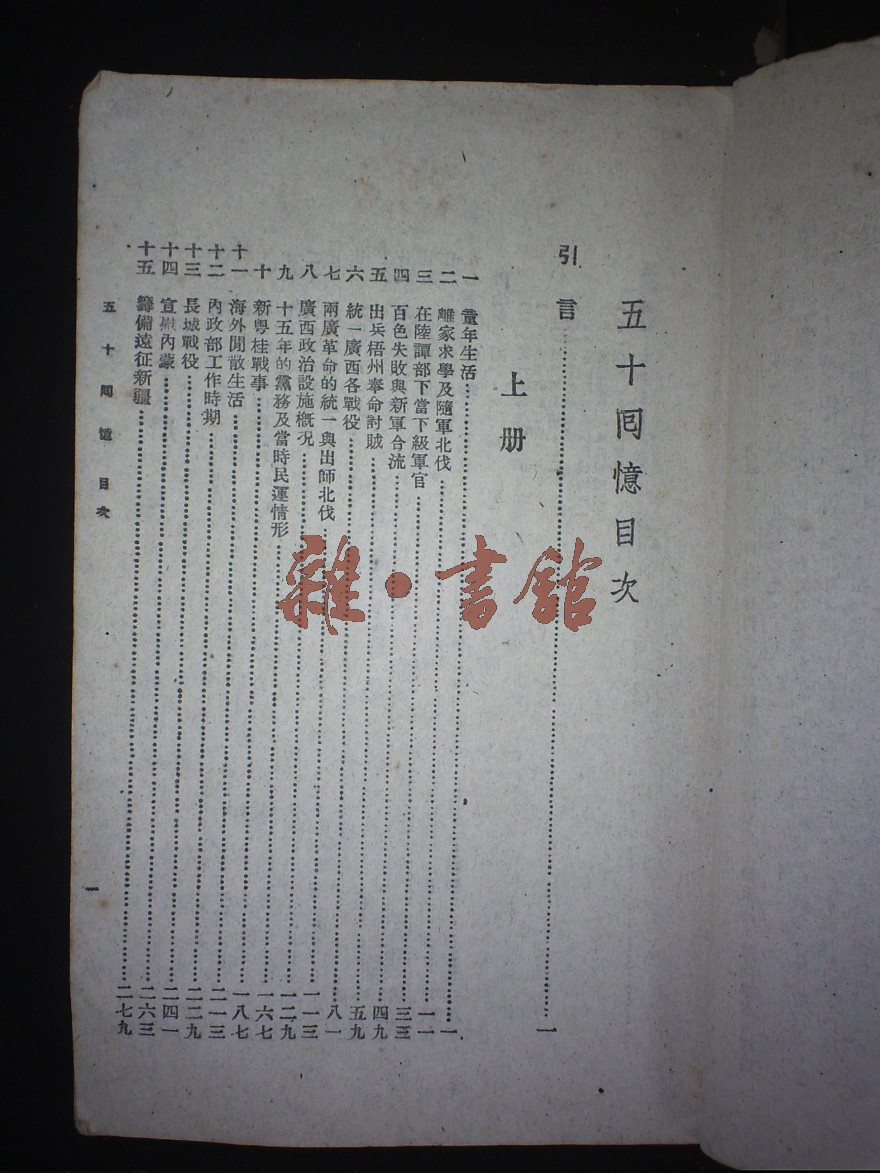 五十囘憶目次
引言……一
上册
一 童年生活……一
二 離家求學及隨軍北伐……一一
三 在陸譚部下當下級軍官……三三
四 百色失敗與新軍合流……四九
五 出兵梧州奉命討賊……五九
六 統一廣西各戰役……八一
七 兩廣革命的統一與出師北伐……一一三
八 廣西政治設施概况……一二九
九 十五年的黨務及當時民運情形……一六七
十 新粵桂戰事……一八七
十一 海外閒散生活……二一三
十二 內政部工作時期……二二九
十三 長城戰役……二四一
十四 宣慰內蒙……二六三
十五 籌備遠征新疆……二七九
五十囘憶 目次
一
雜·書館